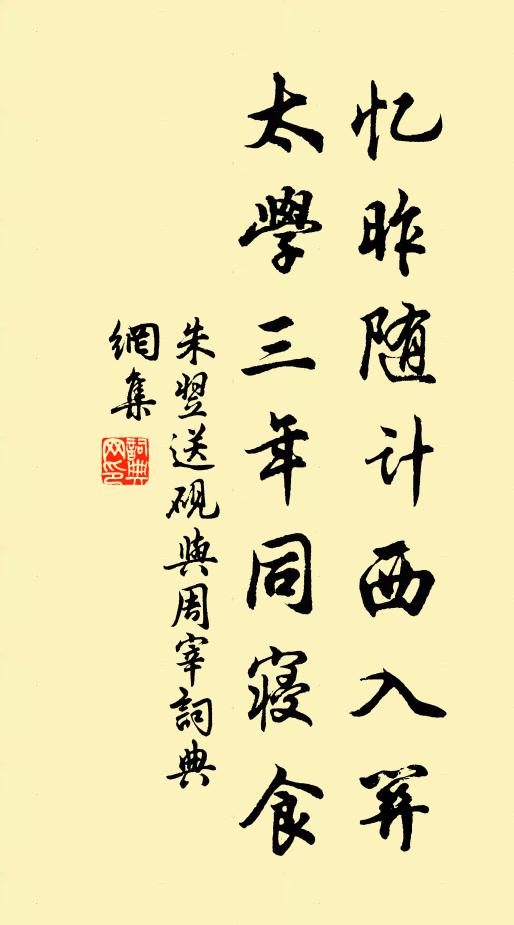 忆昨随计西入关
太學三年同寝食
朱翌送硯與周宰詞典
網集
詞典
网印